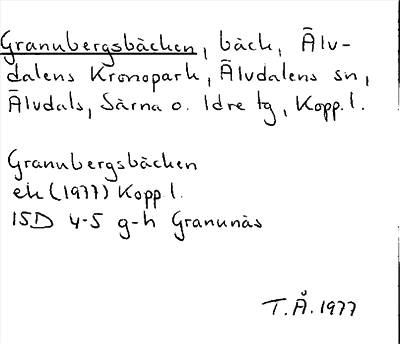 Granubergsbäcken, bäck, Älv-
dalens Kronopark, Älvdalens sn,
Älvdals, Särna o. Idre tg, Kopp. l.
Granubergsbäcken
ek (1977) Kopp l.
15D 4-5 g-h Granunäs
T. Å. 1977